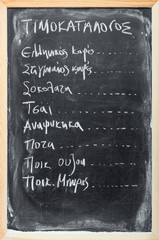 ΤΙΜΟΚΑΤΑΛΟΓΟΣ
Ελληνικός καφές
Στιγμιαίος καφές
Σοκολάτα
Τσάι
Αναψυκτικά
Ποτά
Ποικ. Ούζου
Ποικ. Μπύρας